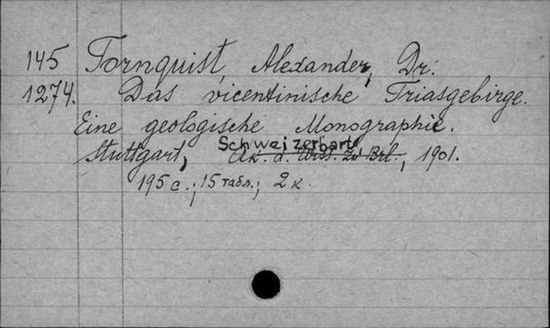 145 Tornquist, Alexander, Dr.
1274. Das vicentinische Triasgebirge.
Eine geologische Monographie.
Schweizerbart
Stuttgart, Ak. d. Wiss. zu Brl., 1901.
195 с.; 15 табл.; 2 к.